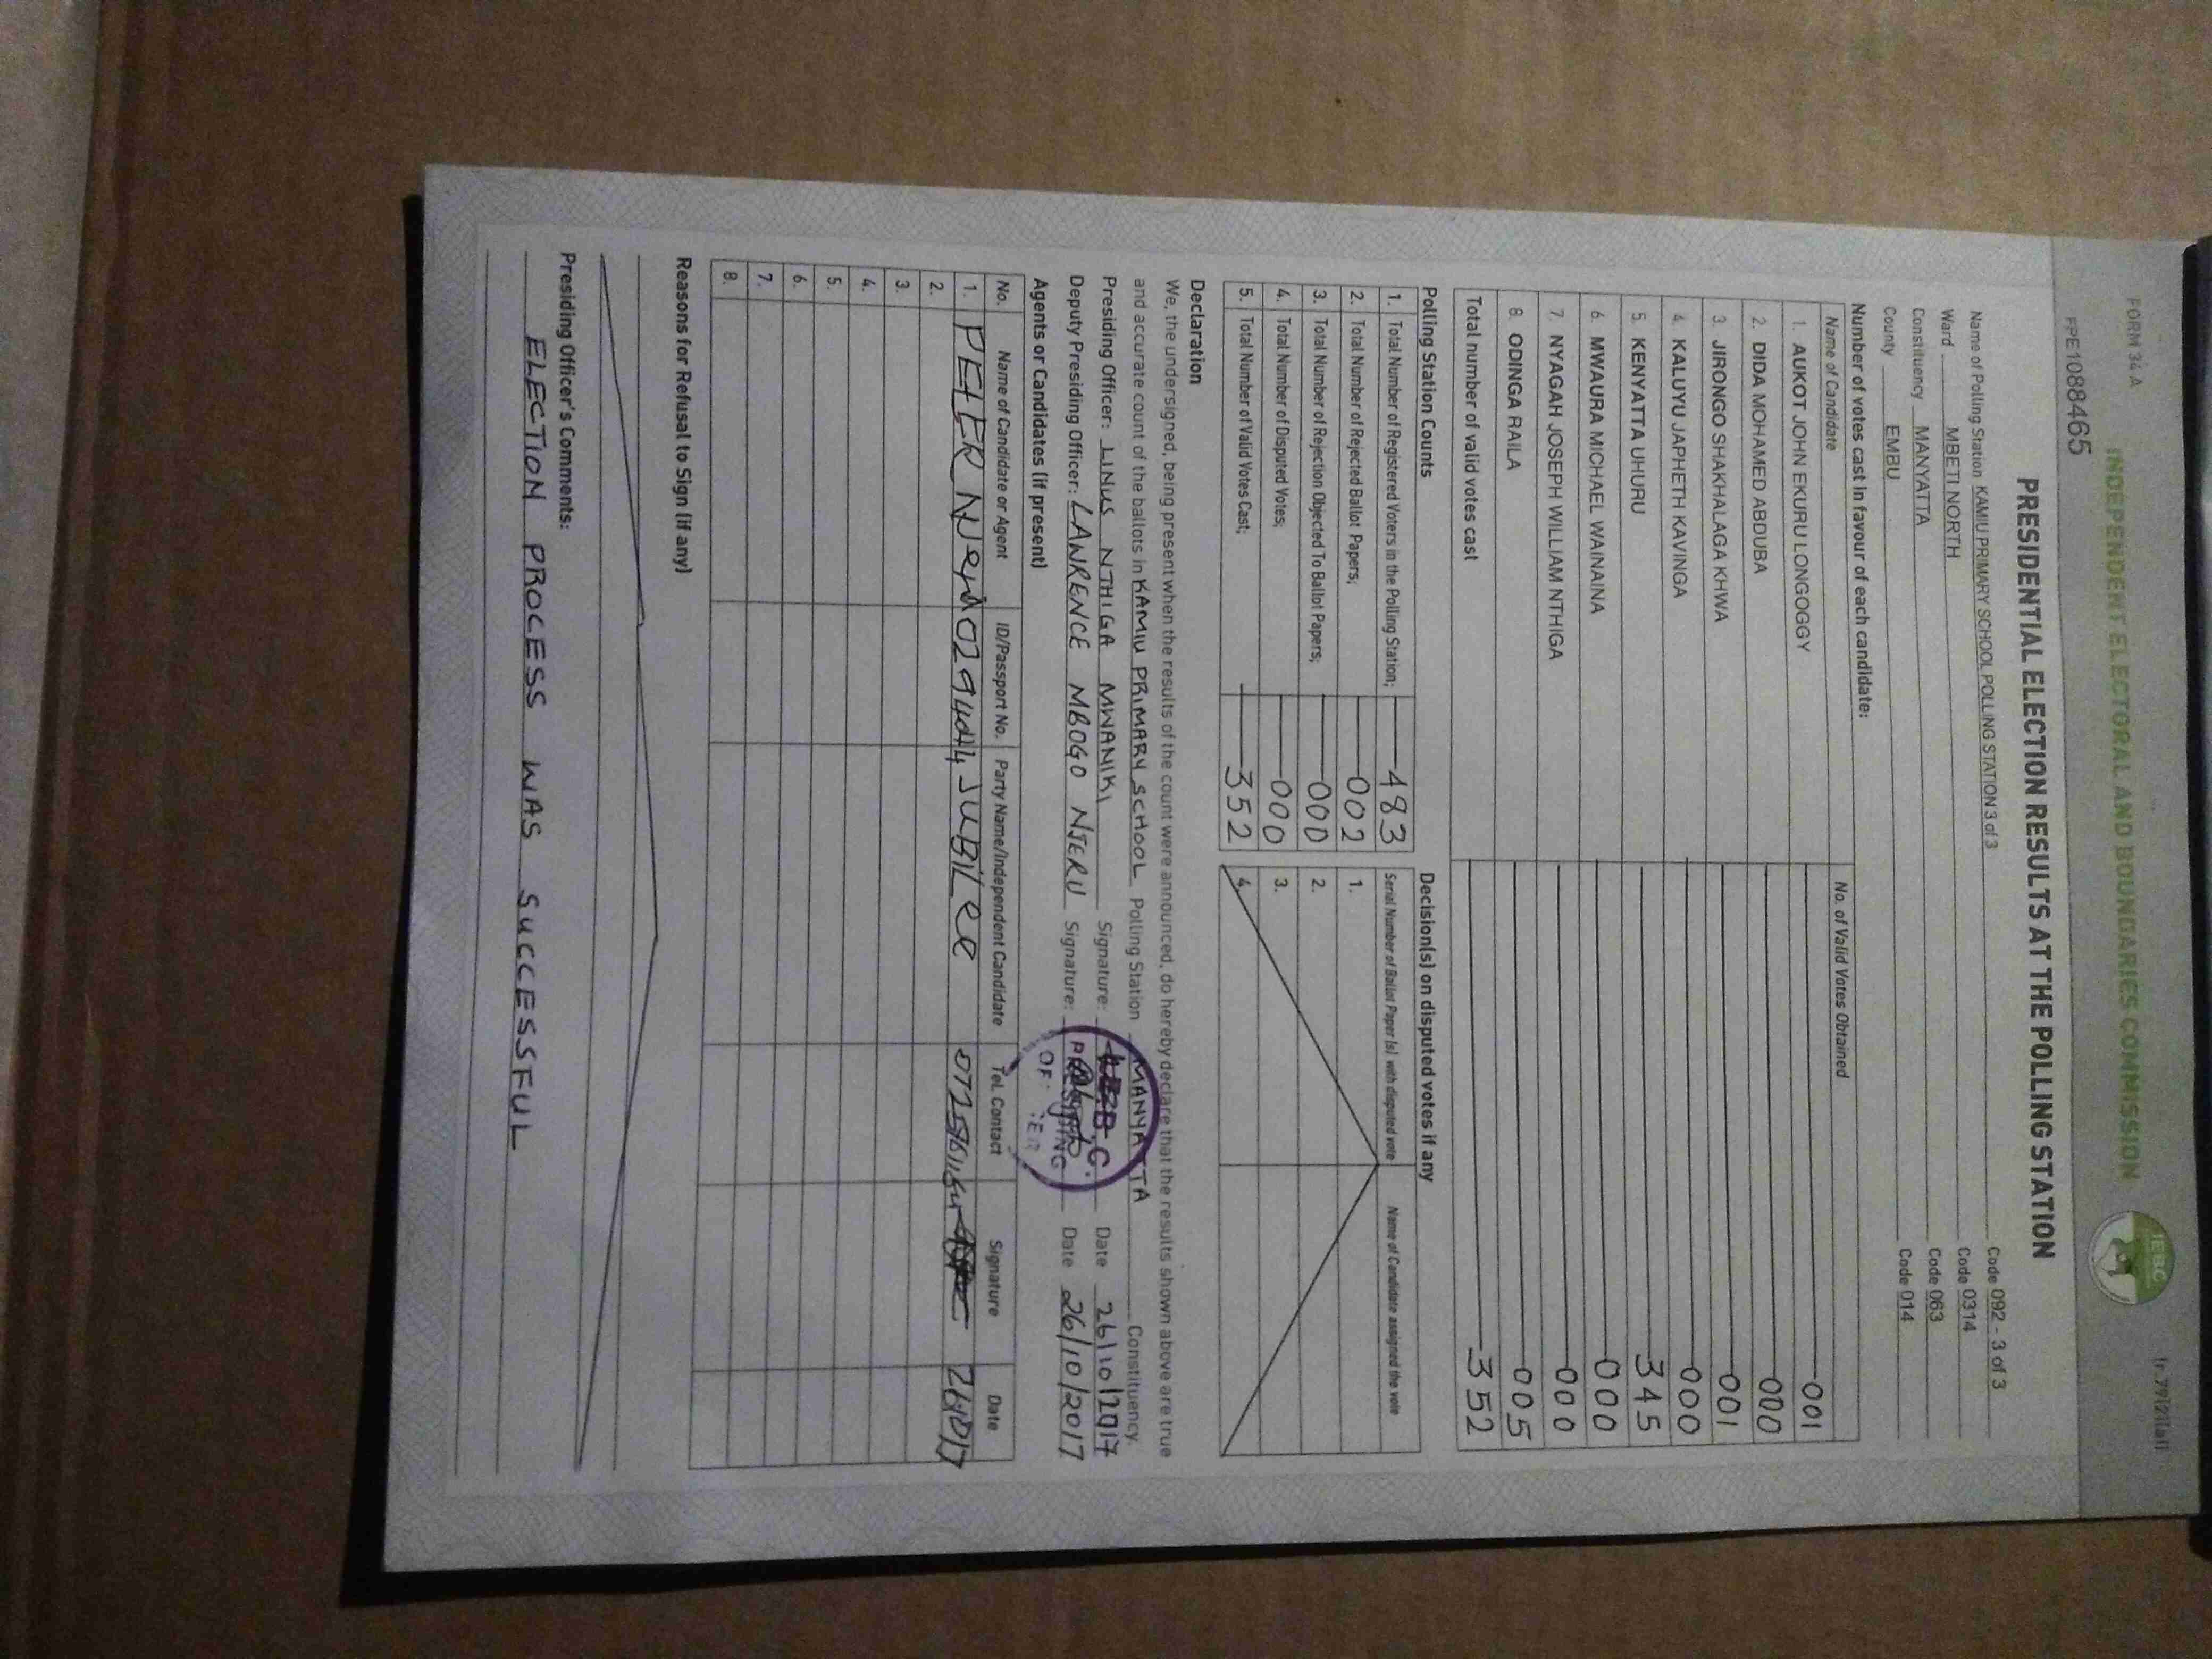 FORM 34 A
fr.79(2)(a)
INDEPENDENT ELECTORAL AND BOUNDARIES COMMISSION
IEBC
PPE1088465
PRESIDENTIAL ELECTION RESULTS AT THE POLLING STATION
Name of Polling Station KAMIU PRIMARY SCHOOL POLLING STATION 3 of 3 Code 092 - 3 of 3
Ward MBETI NORTH Code 0314
Constituency MANYATTA Code 063
County EMBU Code 014
Number of votes cast in favour of each candidate:
Name of Candidate No. of Valid Votes Obtained
1. AUKOT JOHN EKURU LONGOGGY 001
2. DIDA MOHAMED ABDUBA 000
3. JIRONGO SHAKHALAGA KHWA 001
4. KALUYU JAPHETH KAVINGA 000
5. KENYATTA UHURU 345
6. MWAURA MICHAEL WAINAINA 000
7. NYAGAH JOSEPH WILLIAM NTHIGA 000
8. ODINGA RAILA 005
Total number of valid votes cast 352
Polling Station Counts
1. Total Number of Registered Voters in the Polling Station; 483
2. Total Number of Rejected Ballot Papers; 002
3. Total Number of Rejection Objected To Ballot Papers; 000
4. Total Number of Disputed Votes; 000
5. Total Number of Valid Votes Cast; 352
Decision(s) on disputed votes if any
Serial Number of Ballot Paper (s) with disputed vote Name of Candidate assigned the vote
1.
2.
3.
4.
Declaration
We, the undersigned, being present when the results of the count were announced, do hereby declare that the results shown above are true
and accurate count of the ballots in KAMIU PRIMARY SCHOOL Polling Station MANYATTA Constituency.
Presiding Officer: LINUS NTHIGA MWANIKI Signature: Date 26/10/2017
Deputy Presiding Officer: LAWRENCE MBOGO NJERU Signature: Date 26/10/2017
PRESIDING
Agents or Candidates (if present)
No. Name of Candidate or Agent ID/Passport No. Party Name/Independent Candidate Tel. Contact Signature Date
1. PETER JUBILEE
2.
3.
4.
5.
6.
7.
8.
Reasons for Refusal to Sign (if any)
Presiding Officer's Comments:
ELECTION PROCESS WAS SUCCESSFUL